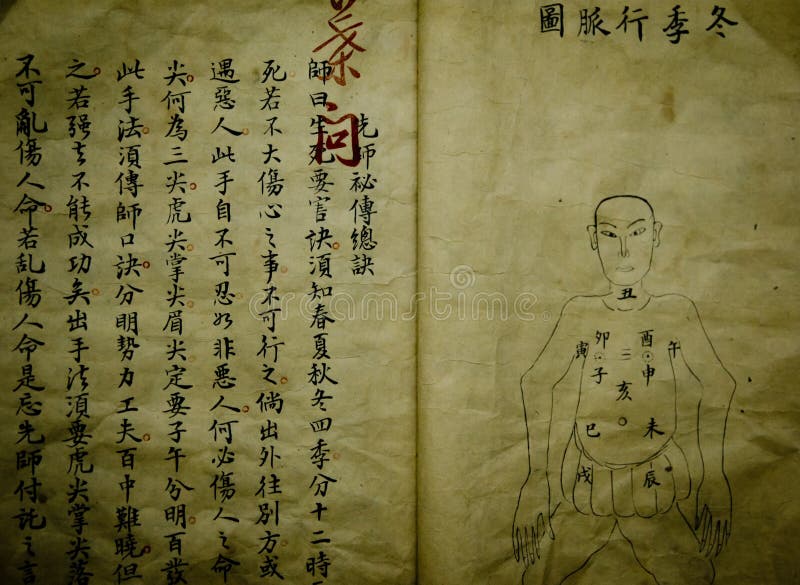 冬季行脈圖
先師祕傳總訣
師曰生死要害訣須知春夏秋冬四季分十二時
死若不大傷心之事不可行之倘出外往別方或
遇惡人此手自不可忍如非悪人何必傷人之命
尖何為三尖虎尖掌尖眉尖定要子午分明百發
此手法須傳師口訣分明勢力工夫百中難曉但
之若强去不能成功矣出手法須要虎尖掌尖落
不可亂傷人命若乱傷人命是忘先師付託之言
問
丑
寅 卯 酉 午
三
子 申
亥
巳 未
戌 辰
dreamstime